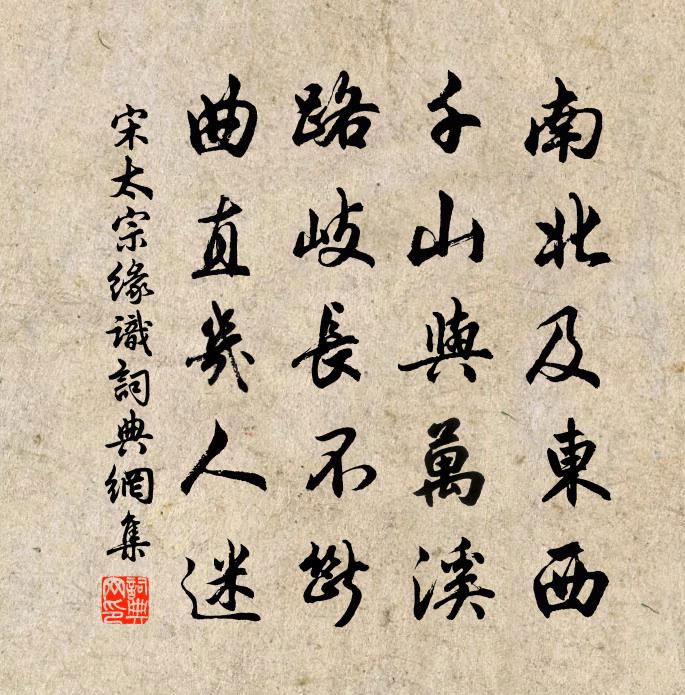 南北及東西
千山與萬溪
路岐長不斷
曲直幾人迷
宋太宗緣識詞典網集
詞典網印